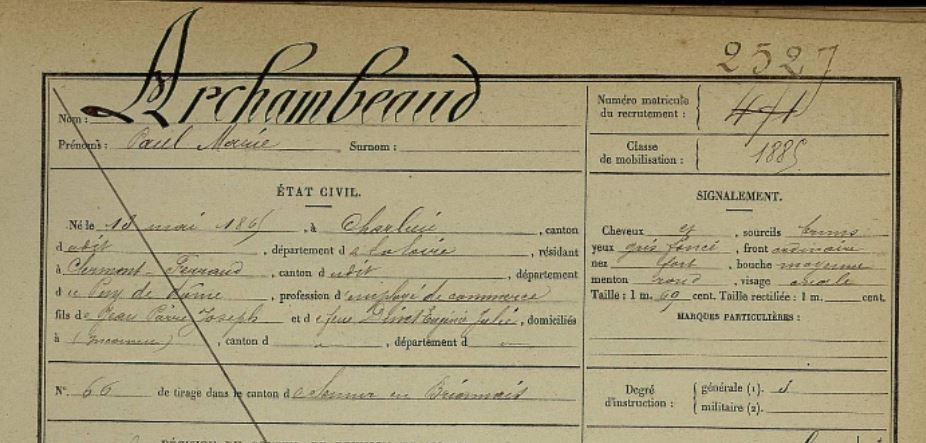 2527
Archambeaud
Nom :
Numéro matricule du recrutement :
Prénoms : Paul Marie Surnom :
Classe de mobilisation : 1885
ÉTAT CIVIL.
Né le 18 mai 1865, à Charlieu, canton
dudit, département de la Loire, résidant
à Clermont-Ferrand, canton dudit, département
du Puy de Dôme, profession d'employé de commerce
fils de Jean Pierre Joseph et de feue Eugénie Julie, domiciliés
à (inconnu), canton d , département d
N° 66 de tirage dans le canton de Semur en Brionnais
SIGNALEMENT.
Cheveux et, sourcils bruns
yeux gris foncé, front ordinaire
nez fort, bouche moyenne
menton rond, visage ovale
Taille : 1 m. 69 cent. Taille rectifiée : 1 m. cent.
MARQUES PARTICULIÈRES :
Degré d'instruction : générale (1). 3
militaire (2).